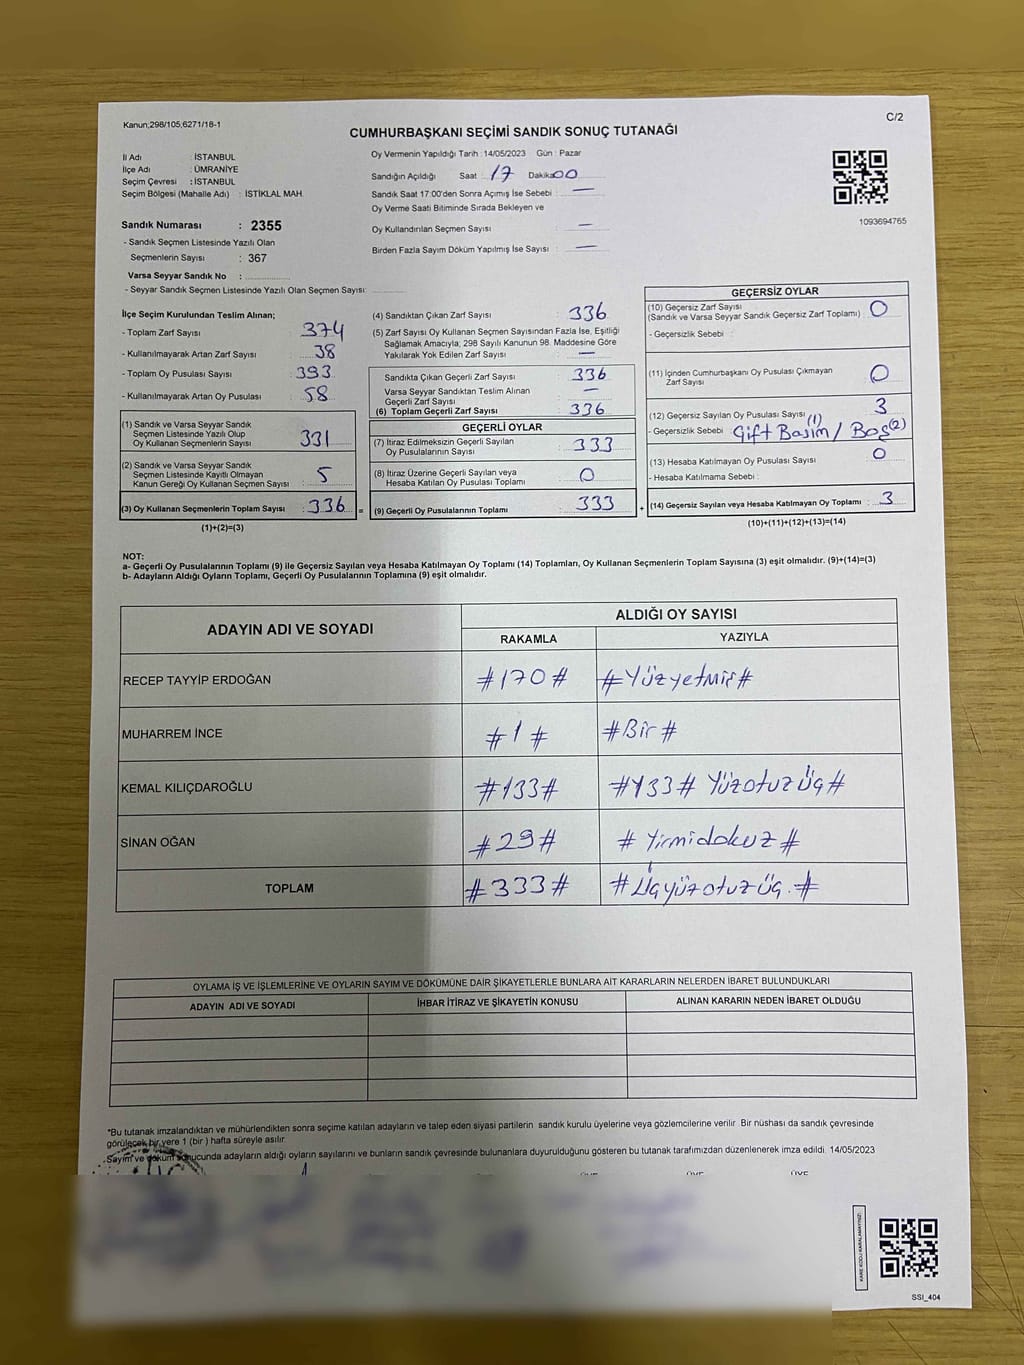 Kanun;298/105,6271/18-1
C/2
CUMHURBAŞKANI SEÇİMİ SANDIK SONUÇ TUTANAĞI
İl Adı : İSTANBUL
İlçe Adı : ÜMRANİYE
Seçim Çevresi : İSTANBUL
Seçim Bölgesi (Mahalle Adı) : İSTİKLAL MAH.
Sandık Numarası : 2355
- Sandık Seçmen Listesinde Yazılı Olan
Seçmenlerin Sayısı : 367
Varsa Seyyar Sandık No :
- Seyyar Sandık Seçmen Listesinde Yazılı Olan Seçmen Sayısı:
Oy Vermenin Yapıldığı Tarih : 14/05/2023 Gün : Pazar
Sandığın Açıldığı Saat : 17 Dakika: 00
Sandık Saat 17:00'den Sonra Açımış İse Sebebi : —
Oy Verme Saati Bitiminde Sırada Bekleyen ve
Oy Kullandırılan Seçmen Sayısı : —
Birden Fazla Sayım Döküm Yapılmış İse Sayısı : —
1093694765
İlçe Seçim Kurulundan Teslim Alınan;
- Toplam Zarf Sayısı : 374
- Kullanılmayarak Artan Zarf Sayısı : 38
- Toplam Oy Pusulası Sayısı : 393
- Kullanılmayarak Artan Oy Pusulası : 58
(1) Sandık ve Varsa Seyyar Sandık
Seçmen Listesinde Yazılı Olup
Oy Kullanan Seçmenlerin Sayısı : 331
(2) Sandık ve Varsa Seyyar Sandık
Seçmen Listesinde Kayıtlı Olmayan
Kanun Gereği Oy Kullanan Seçmen Sayısı : 5
(3) Oy Kullanan Seçmenlerin Toplam Sayısı : 336 =
(1)+(2)=(3)
(4) Sandıktan Çıkan Zarf Sayısı : 336
(5) Zarf Sayısı Oy Kullanan Seçmen Sayısından Fazla İse, Eşitliği
Sağlamak Amacıyla, 298 Sayılı Kanunun 98. Maddesine Göre
Yakılarak Yok Edilen Zarf Sayısı : —
Sandıkta Çıkan Geçerli Zarf Sayısı : 336
Varsa Seyyar Sandıktan Teslim Alınan
Geçerli Zarf Sayısı : —
(6) Toplam Geçerli Zarf Sayısı : 336
GEÇERLİ OYLAR
(7) İtiraz Edilmeksizin Geçerli Sayılan
Oy Pusulalarının Sayısı : 333
(8) İtiraz Üzerine Geçerli Sayılan veya
Hesaba Katılan Oy Pusulası Toplamı : 0
(9) Geçerli Oy Pusulalarının Toplamı : 333 +
GEÇERSİZ OYLAR
(10) Geçersiz Zarf Sayısı
(Sandık ve Varsa Seyyar Sandık Geçersiz Zarf Toplamı) : 0
- Geçersizlik Sebebi :
(11) İçinden Cumhurbaşkanı Oy Pusulası Çıkmayan
Zarf Sayısı : 0
(12) Geçersiz Sayılan Oy Pusulası Sayısı : 3
- Geçersizlik Sebebi : Çift Basım(1) / Boş(2)
(13) Hesaba Katılmayan Oy Pusulası Sayısı : 0
- Hesaba Katılmama Sebebi :
(14) Geçersiz Sayılan veya Hesaba Katılmayan Oy Toplamı : 3
(10)+(11)+(12)+(13)=(14)
NOT:
a- Geçerli Oy Pusulalarının Toplamı (9) ile Geçersiz Sayılan veya Hesaba Katılmayan Oy Toplamı (14) Toplamları, Oy Kullanan Seçmenlerin Toplam Sayısına (3) eşit olmalıdır. (9)+(14)=(3)
b- Adayların Aldığı Oyların Toplamı, Geçerli Oy Pusulalarının Toplamına (9) eşit olmalıdır.
ADAYIN ADI VE SOYADI
ALDIĞI OY SAYISI
RAKAMLA YAZIYLA
RECEP TAYYİP ERDOĞAN #170# #Yüzyetmiş#
MUHARREM İNCE #1# #Bir#
KEMAL KILIÇDAROĞLU #133# #133# Yüzotuzüç#
SİNAN OĞAN #29# #Yirmidokuz#
TOPLAM #333# #Üçyüzotuzüç.#
OYLAMA İŞ VE İŞLEMLERİNE VE OYLARIN SAYIM VE DÖKÜMÜNE DAİR ŞİKAYETLERLE BUNLARA AİT KARARLARIN NELERDEN İBARET BULUNDUKLARI
ADAYIN ADI VE SOYADI İHBAR İTİRAZ VE ŞİKAYETİN KONUSU ALINAN KARARIN NEDEN İBARET OLDUĞU
*Bu tutanak imzalandıktan ve mühürlendikten sonra seçime katılan adayların ve talep eden siyasi partilerin sandık kurulu üyelerine veya gözlemcilerine verilir. Bir nüshası da sandık çevresinde
görülecek bir yere 1 (bir) hafta süreyle asılır.
Sayım ve döküm sonucunda adayların aldığı oyların sayılarını ve bunların sandık çevresinde bulunanlara duyurulduğunu gösteren bu tutanak tarafımızdan düzenlenerek imza edildi. 14/05/2023
KARE KODU KARALAMAYINIZ!
SSI_404